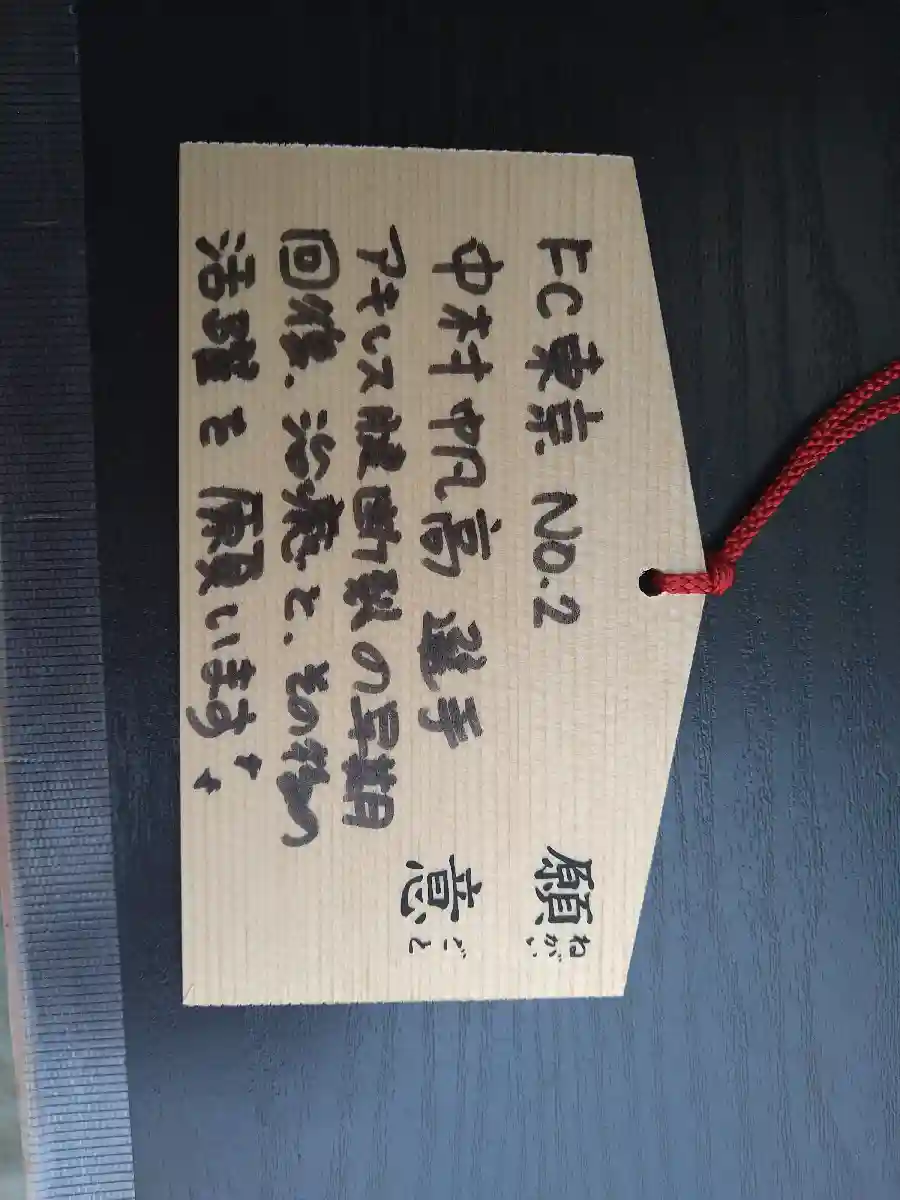 願意
ねがいごと
FC東京 NO.2
中村帆高 選手
アキレス腱断裂の早期
回復、治癒と、その後の
活躍を願います。